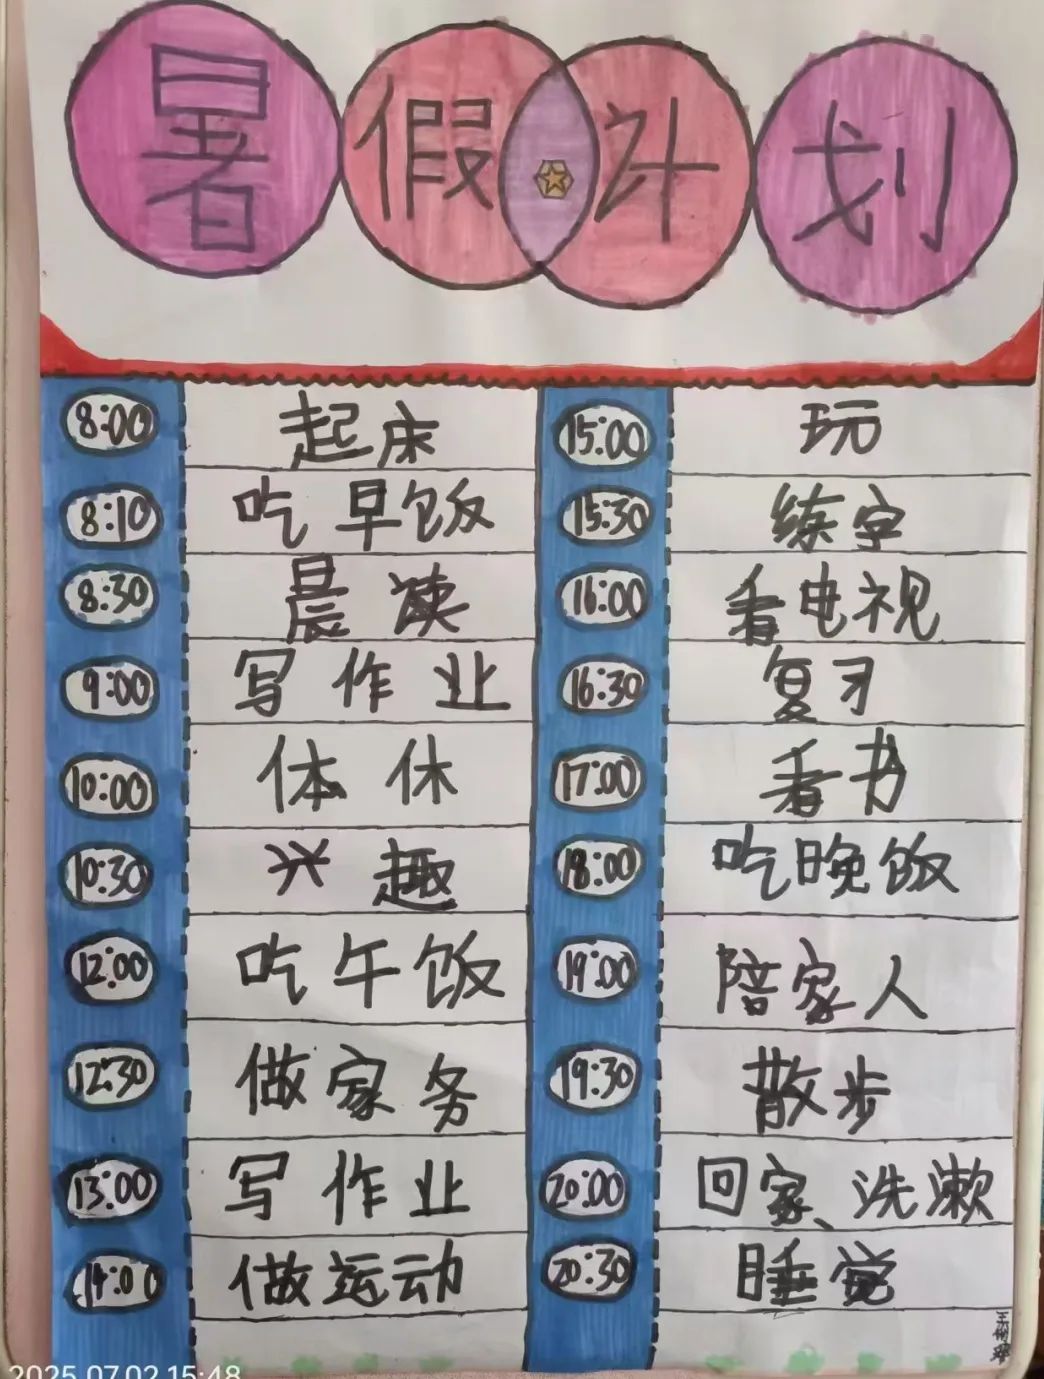 暑假计划
8:00 起床
8:10 吃早饭
8:30 晨读
9:00 写作业
10:00 体休
10:30 兴趣
12:00 吃午饭
12:30 做家务
13:00 写作业
14:00 做运动
15:00 玩
15:30 练字
16:00 看电视
16:30 复习
17:00 看书
18:00 吃晚饭
19:00 陪家人
19:30 散步
20:00 回家、洗漱
20:30 睡觉
2025.07.02 15:48